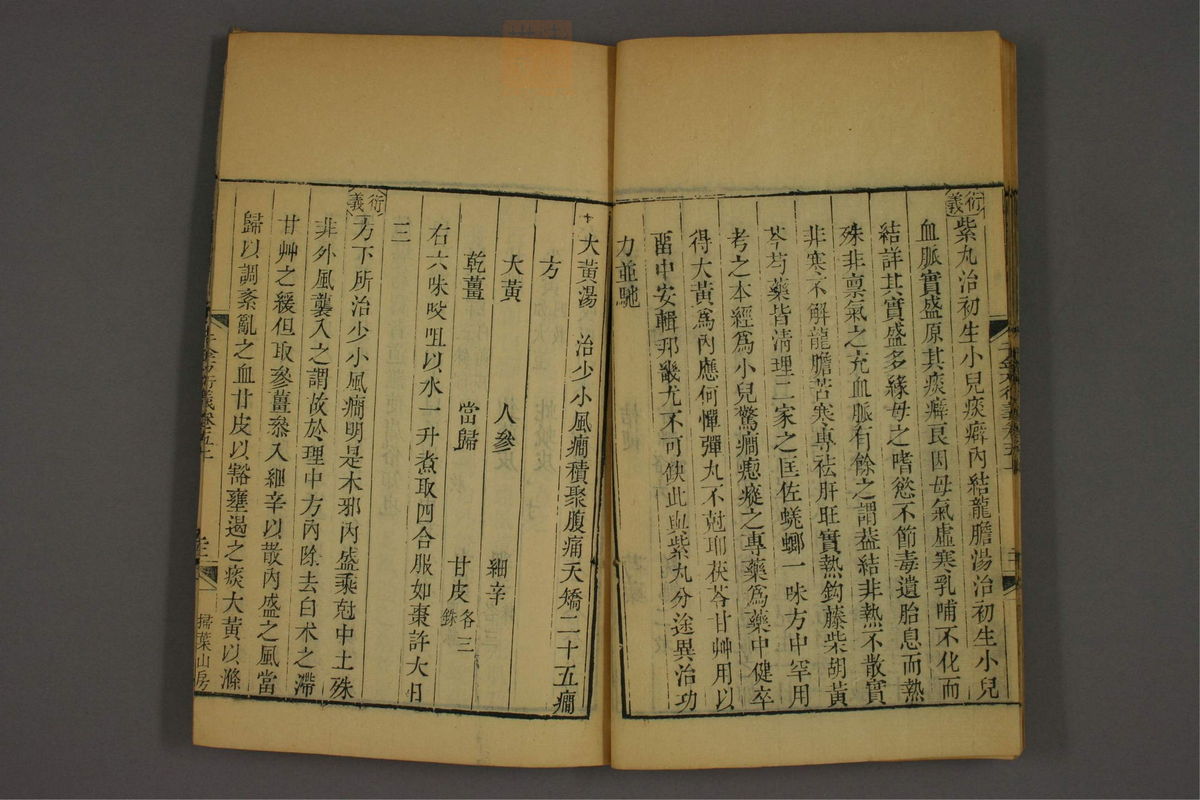 衍義
紫丸治初生小兒痰癖內結龍膽湯治初生小兒
血脈實盛原其痰癖良因母氣虛寒乳哺不化而
結詳其實盛多緣母之嗜慾不節毒遺胎息而熱
殊非禀氣之充血脈有餘之謂葢結非熱不散實
非寒不解龍膽苦寒專祛肝旺實熱鈎藤柴胡黃
芩芍藥皆清理二家之匡佐蜣蜋一味方中罕用
考之本經為小兒驚癇瘛瘲之專藥為藥中健卒
得大黃為內應何憚彈丸不尅耶茯苓甘艸用以
畱中安輯邦畿尤不可缺此與紫丸分途異治功
力並馳
大黃湯 治少小風癇積聚腹痛夭矯二十五癇
方
大黃 人參 細辛
乾薑 當歸 甘皮各三銖
右六味㕮咀以水一升煮取四合服如棗許大日
三
衍義
方下所治少小風癇明是木邪內盛乘尅中土殊
非外風襲入之謂故於理中方內除去白术之滯
甘艸之緩但取參薑叅入細辛以散內盛之風當
歸以調紊亂之血甘皮以豁壅遏之痰大黃以滌
掃葉山房